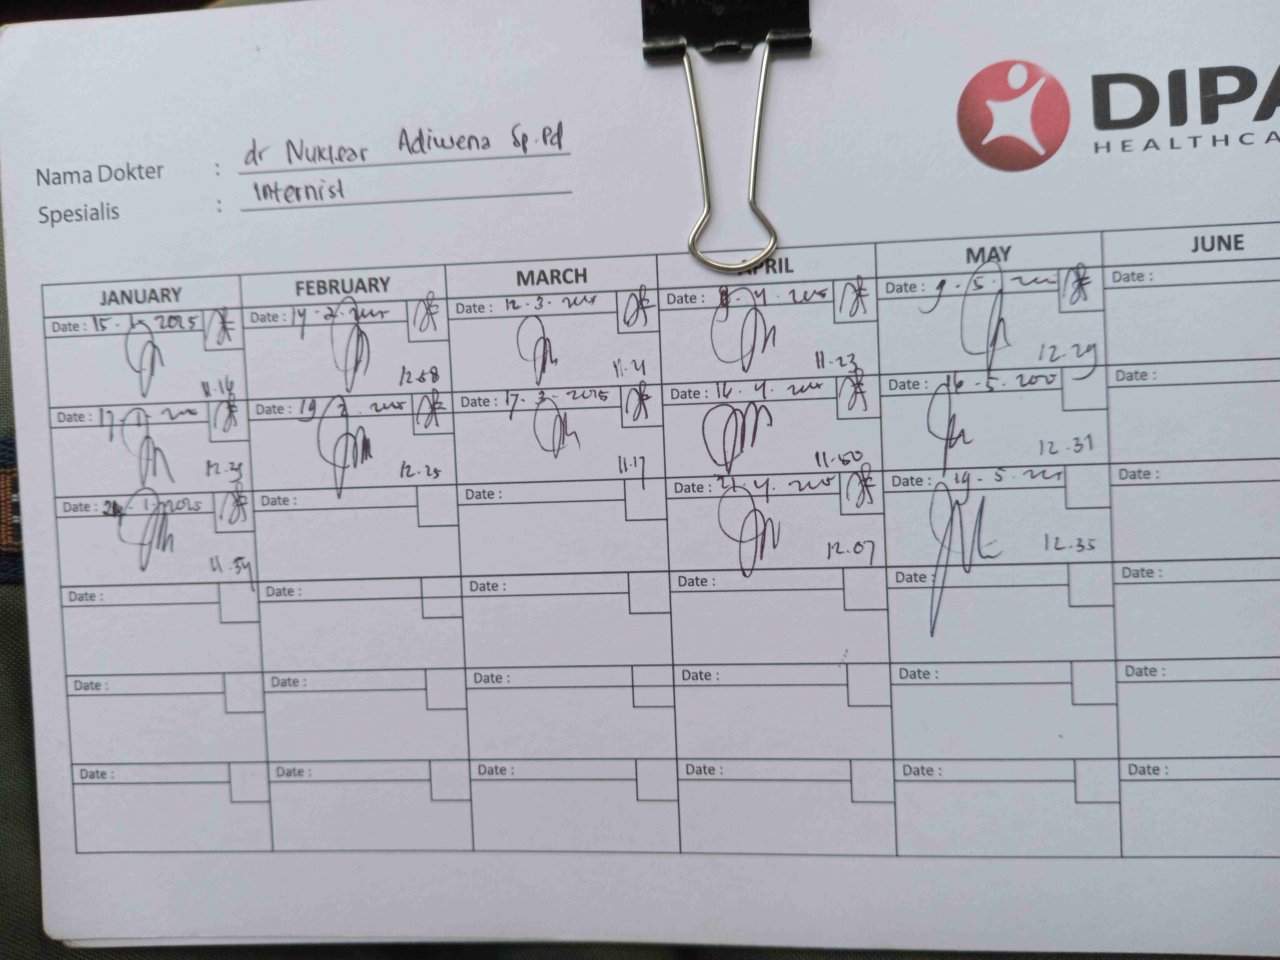 DIPA
HEALTHCA
Nama Dokter : dr Nuklear Adiwena Sp.Pd
Spesialis : Internist
JANUARY FEBRUARY MARCH APRIL MAY JUNE
Date : 15-1-2025 Date : 14-2- Date : 12-3- Date : 8-4- Date : 9-5- Date :
11.16 12.58 11.21 11.23 12.29
Date : 17-1- Date : 19-2- Date : 17-3-2025 Date : 16-4- Date : 16-5- Date :
12.25 12.25 11.17 11.50 12.31
Date : 1-2025 Date : Date : Date : 21-4- Date : 19-5- Date :
11.54 12.07 12.35
Date : Date : Date : Date : Date : Date :
Date : Date : Date : Date : Date : Date :
Date : Date : Date : Date : Date : Date :